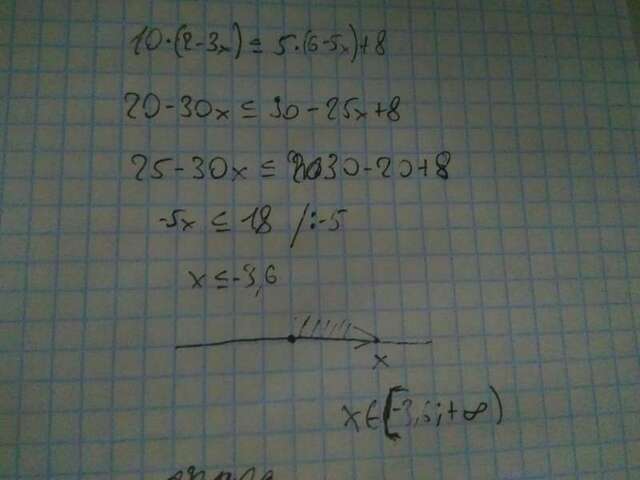 10·(2-3x) ≤ 5·(6-5x)+8
20-30x ≤ 30-25x+8
25-30x ≤ 30-20+8
-5x ≤ 18 /:-5
x ≤ -3,6
x
x∈[-3,6;+∞)